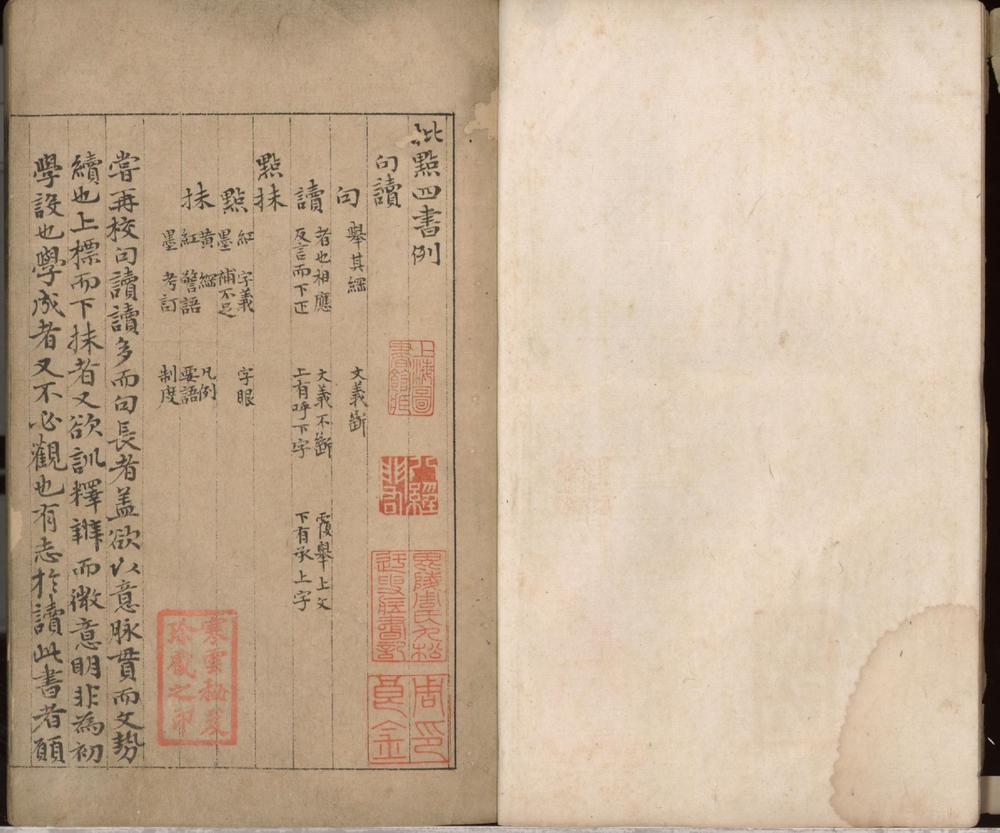 批點四書例
句讀
句 舉其綱 文義斷
讀 者也相應 文義不斷 覆舉上文
反言而下正 上有呼下字 下有承上字
點抹
點 紅 字義 字眼
墨 補不足
抹 黃 綱 凡例
紅 警語 要語
墨 考訂 制度
嘗再校句讀讀多而句長者盖欲以意脉貫而文勢
續也上標而下抹者又欲訓釋辨而微意明非為初
學設也學成者又不必觀也有志於讀此書者願
上海圖
書館藏
毘陵周氏九松
迂叟藏書記
周印
良金
寒雲秘笈
珍藏之印